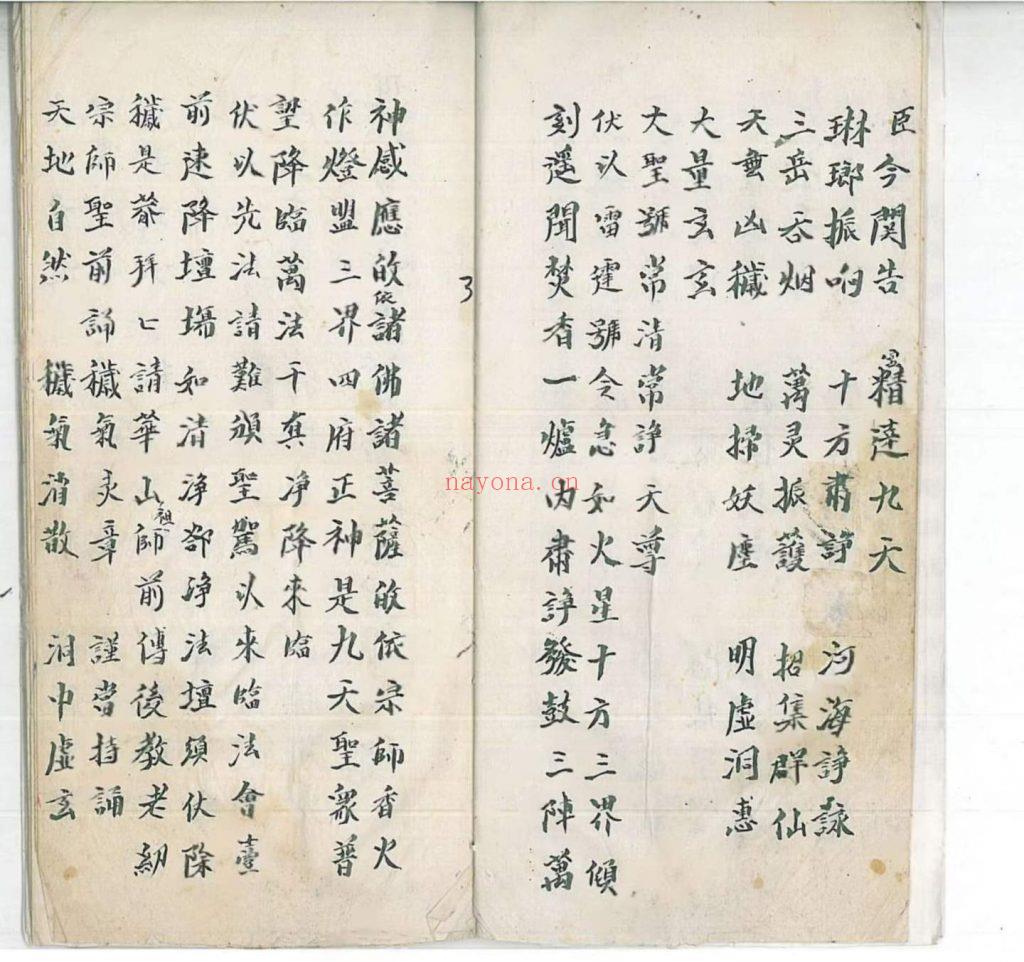 臣今関告 精達九天
琳瑯振响 十方肅諍 河海諍詠
三岳吞烟 萬灵振護 招集群仙
天無凶穢 地掃妖塵 明虛洞
大量玄玄
大聖號常清常諍天尊
伏以雷霆號令急如火星十方三界傾
刻遥聞焚香一爐内肅諍發鼓三陣萬
3
神感應皈依諸佛諸菩薩皈依宗師香火
作燈盟三界四府正神是九天聖眾普
望降臨萬法千真净降來臨
伏以先法請難頒聖駕以來臨法會臺
前速降壇場如清淨部诤法壇須伏除
穢是恭拜匕請華山祖師前傅後教老納
宗師聖前誦穢氣灵章 謹當持誦
天地自然 穢氣消散 洞中虛玄
nayona.cn